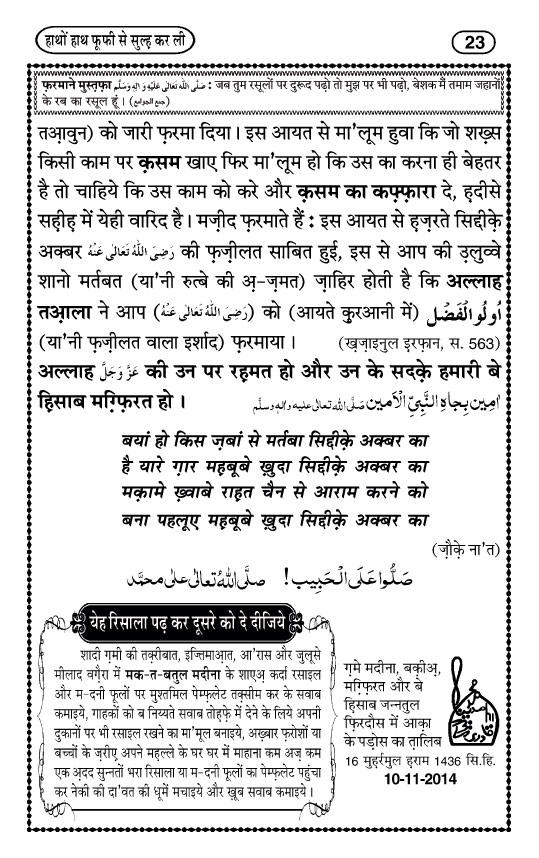 हाथों हाथ फूफी से सुल्ह़ कर ली
23
फ़रमाने मुस्त़फ़ा صَلَّى اللهُ تَعَالٰى عَلَيْهِ وَاٰلِهٖ وَسَلَّم : जब तुम रसूलों पर दुरूद पढ़ो तो मुझ पर भी पढ़ो, बेशक मैं तमाम जहानों
के रब का रसूल हूं। (جمع الجوامع)
तआ़वुन) को जारी फ़रमा दिया। इस आयत से मा'लूम हुवा कि जो शख़्स
किसी काम पर क़सम खाए फिर मा'लूम हो कि उस का करना ही बेहतर
है तो चाहिये कि उस काम को करे और क़सम का कफ़्फ़ारा दे, ह़दीसे
सह़ीह़ में येही वारिद है। मज़ीद फ़रमाते हैं : इस आयत से ह़ज़रते सिद्दीके़
अक्बर رَضِىَ اللهُ تَعَالٰى عَنْهُ की फ़ज़ीलत साबित हुई, इस से आप की उ़लुव्वे
शानो मर्तबत (या'नी रुत्बे की अ़-ज़मत) ज़ाहिर होती है कि अल्लाह
तआ़ला ने आप (رَضِىَ اللهُ تَعَالٰى عَنْهُ) को (आयते क़ुरआनी में) اُولُو الْفَضْلِ
(या'नी फ़ज़ीलत वाला इर्शाद) फ़रमाया। (ख़ज़ाइनुल इरफ़ान, स. 563)
अल्लाह عَزَّوَجَلَّ की उन पर रह़मत हो और उन के सदके़ हमारी बे
हि़साब मग़्फ़िरत हो। اٰمِين بِجَاهِ النَّبِيِّ الْاَمين صَلَّى الله تعالٰى عليه واٰله وسلَّم
बयां हो किस ज़बां से मर्तबा सिद्दीके़ अक्बर का
है यारे ग़ार मह़बूबे ख़ुदा सिद्दीके़ अक्बर का
मक़ामे ख़्वाबे राह़त चैन से आराम करने को
बना पहलूए मह़बूबे ख़ुदा सिद्दीके़ अक्बर का
(ज़ौके़ ना'त)
صَلُّوا عَلَى الْحَبِيب! صلَّى اللهُ تعالٰى علٰى محمَّد
येह रिसाला पढ़ कर दूसरे को दे दीजिये
शादी ग़मी की तक़्रीबात, इज्तिमाआ़त, आ'रास और जुलूसे
मीलाद वग़ैरा में मक-त-बतुल मदीना के शाएअ़ कर्दा रसाइल
और म-दनी फूलों पर मुश्तमिल पेम्फ़लेट तक़्सीम कर के सवाब
कमाइये, गाहकों को ब निय्यते सवाब तोह़फे़ में देने के लिये अपनी
दुकानों पर भी रसाइल रखने का मा'मूल बनाइये, अख़्बार फ़रोशों या
बच्चों के ज़रीए़ अपने मह़ल्ले के घर घर में माहाना कम अज़ कम
एक अ़दद सुन्नतों भरा रिसाला या म-दनी फूलों का पेम्फ़लेट पहुंचा
कर नेकी की दा'वत की धूमें मचाइये और ख़ूब सवाब कमाइये।
ग़मे मदीना, बक़ीअ़,
मग़्फ़िरत और बे
हि़साब जन्नतुल
फ़िरदौस में आक़ा
के पड़ोस का त़ालिब
16 मुह़र्रमुल ह़राम 1436 सि.हि.
10-11-2014